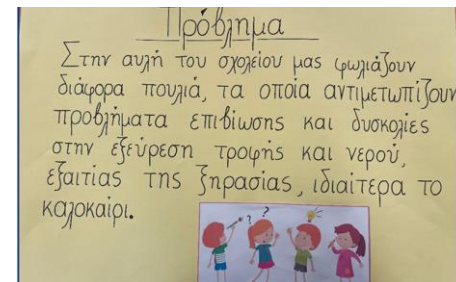 Πρόβλημα
Στην αυλή του σχολείου μας φωλιάζουν
διάφορα πουλιά, τα οποία αντιμετωπίζουν
προβλήματα επιβίωσης και δυσκολίες
στην εξεύρεση τροφής και νερού,
εξαιτίας της ξηρασίας, ιδιαίτερα το
καλοκαίρι.
? ?